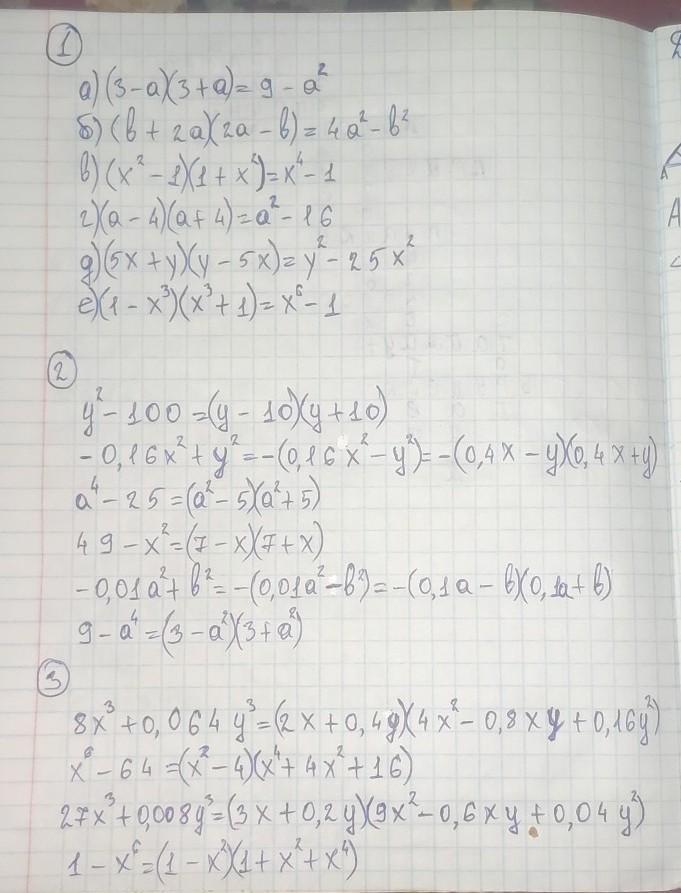 1
а) (3-a)(3+a)=9-a²
б) (b+2a)(2a-b)=4a²-b²
в) (x²-1)(1+x²)=x⁴-1
г) (a-4)(a+4)=a²-16
д) (5x+y)(y-5x)=y²-25x²
е) (1-x³)(x³+1)=x⁶-1
2
y²-100=(y-10)(y+10)
-0,16x²+y²=-(0,16x²-y²)=-(0,4x-y)(0,4x+y)
a⁴-25=(a²-5)(a²+5)
49-x²=(7-x)(7+x)
-0,01a²+b²=-(0,01a²-b²)=-(0,1a-b)(0,1a+b)
9-a⁴=(3-a²)(3+a²)
3
8x³+0,064y³=(2x+0,4y)(4x²-0,8xy+0,16y²)
x⁶-64=(x²-4)(x⁴+4x²+16)
27x³+0,008y³=(3x+0,2y)(9x²-0,6xy+0,04y²)
1-x⁶=(1-x²)(1+x²+x⁴)